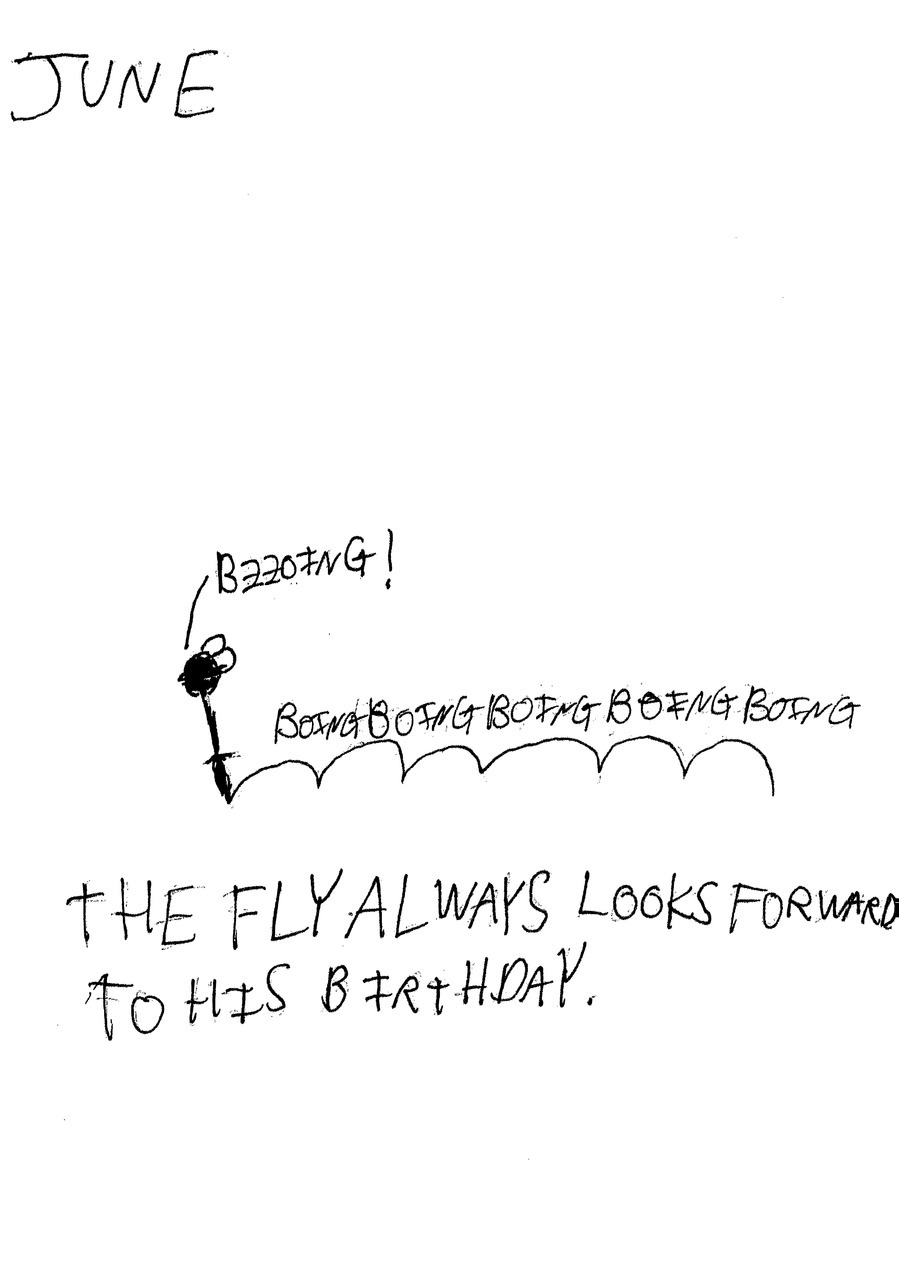 JUNE
BZZOING!
BOING BOING BOING BOING BOING
THE FLY ALWAYS LOOKS FORWARD
TO HIS BIRTHDAY.